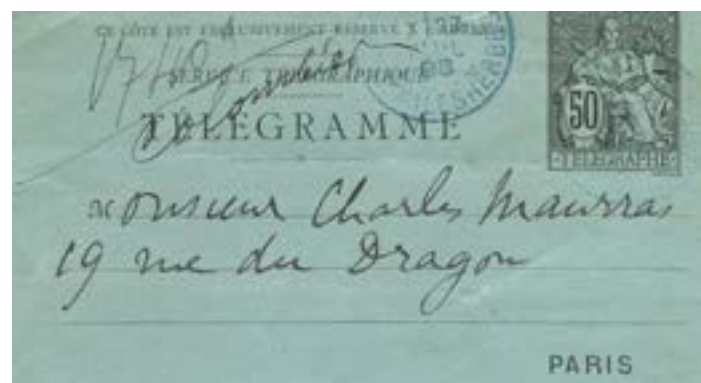 CE CÔTÉ EST EXCLUSIVEMENT RÉSERVÉ À L'ADRESSE
SERVICE TÉLÉGRAPHIQUE
TÉLÉGRAMME
50
TÉLÉGRAPHE
Monsieur Charles Maurras
19 rue du Dragon
PARIS